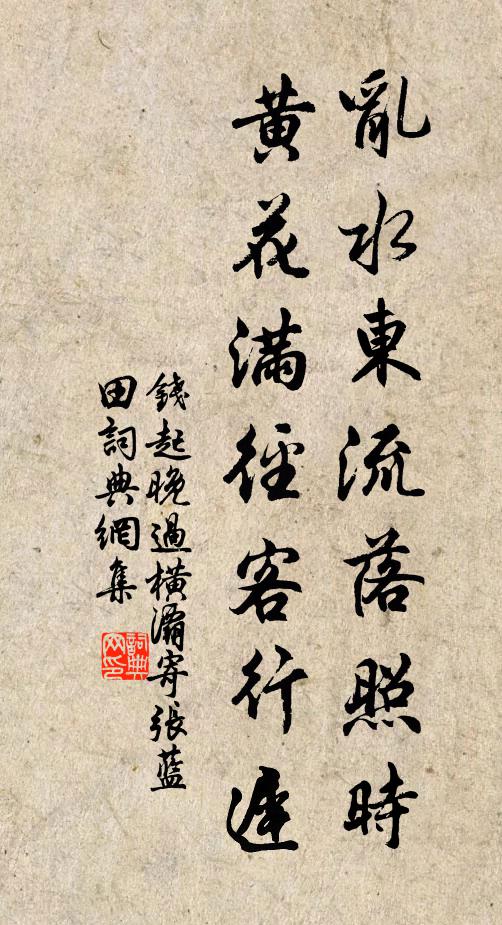 亂水東流落照時
黃花滿徑客行遲
錢起晚過橫灞寄張藍
田詞典網集
詞典
网印